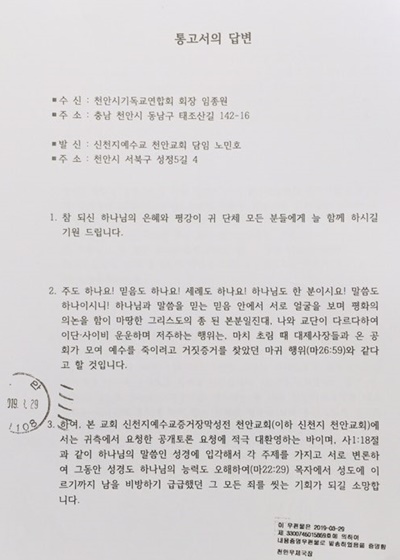 통고서의 답변
■ 수 신 : 천안시기독교연합회 회장 임종원
■ 주 소 : 충남 천안시 동남구 태조산길 142-16
■ 발 신 : 신천지예수교 천안교회 담임 노민호
■ 주 소 : 천안시 서북구 성정5길 4
1. 참 되신 하나님의 은혜와 평강이 귀 단체 모든 분들에게 늘 함께 하시길
기원 드립니다.
2. 주도 하나요! 믿음도 하나요! 세례도 하나요! 하나님도 한 분이시요! 말씀도
하나이시니! 하나님과 말씀을 믿는 믿음 안에서 서로 얼굴을 보며 평화의
의논을 함이 마땅한 그리스도의 종 된 본분일진대, 나와 교단이 다르다하여
이단·사이비 운운하며 저주하는 행위는, 마치 초림 때 대제사장들과 온 공
회가 모여 예수를 죽이려고 거짓증거를 찾았던 마귀 행위(마26:59)와 같다
고 할 것입니다.
3. 하여, 본 교회 신천지예수교증거장막성전 천안교회(이하 신천지 천안교회)에
서는 귀측에서 요청한 공개토론 요청에 적극 대환영하는 바이며, 사1:18절
과 같이 하나님의 말씀인 성경에 입각해서 각 주제를 가지고 서로 변론하
여 그동안 성경도 하나님의 능력도 오해하여(마22:29) 목자에서 성도에 이
르기까지 남을 비방하기 급급했던 그 모든 죄를 씻는 기회가 되길 소망합
니다.
이 우편물은 2019-03-29
제 3300746015869호에 의하여
내용증명우편물로 발송하였음을 증명함
천안우체국장